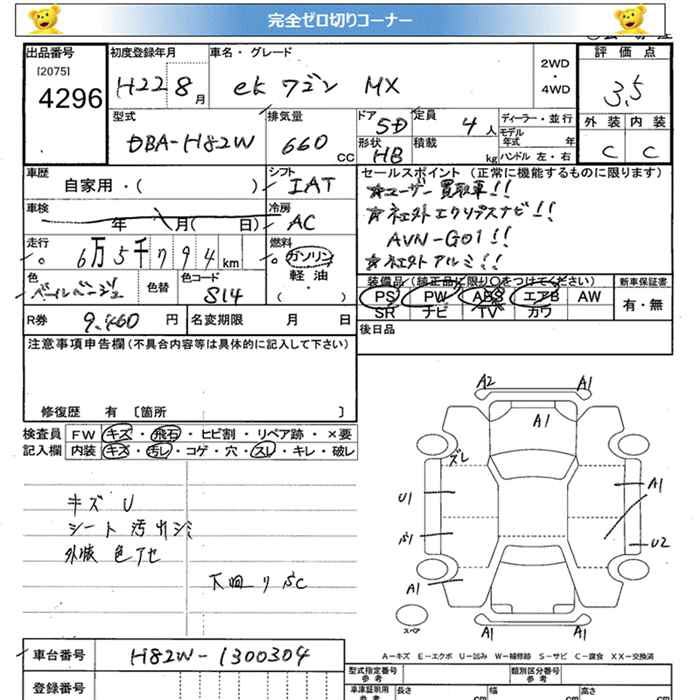 完全ゼロ切りコーナー
出品番号
[2075]
4296
初度登録年月
H22 8月
車名・グレード
ek ワゴン MX
2WD
・
4WD
評価点
3.5
外装 内装
C C
型式
DBA-H82W
排気量
660 CC
ドア
5D
形状
HB
定員
4人
積載
kg
ディーラー・並行
モデル年式 年
ハンドル 左・右
車歴
自家用・( )
シフト
IAT
車検
年 月( 日)
冷房
AC
走行
6万5千794km
燃料
ガソリン
軽油
( )
色
パールベージュ
色替
色コード
S14
R券 9,460円
名変期限 月 日
セールスポイント (正常に機能するものに限ります)
☆ユーザー買取車!!
☆社外エクリプスナビ!!
AVN-G01!!
☆社外アルミ!!
装備品(純正品に限り○をつけてください)
PS PW ABS エアB AW
SR ナビ TV カワ
新車保証書
有・無
後日品
注意事項申告欄(不具合内容等は具体的に記入して下さい)
修復歴 有 [箇所 ]
検査員記入欄
FW キズ・飛石・ヒビ割・リペア跡・×要
内装 キズ・汚レ・コゲ・穴・スレ・キレ・破レ
キズ U
シート 汚れシミ
外減 色アセ
下回りSC
A2 A1
A1
ズレ
U1
A1
U2
A1
A1 A1
スペア
A-キズ E-エクボ U-凹み W-補修跡 S-サビ C-腐食 XX-交換済
車台番号
H82W-1300304
登録番号
型式指定番号
参考
類別区分番号
参考
車庫証明用
参考
長さ cm
幅 cm
高さ cm